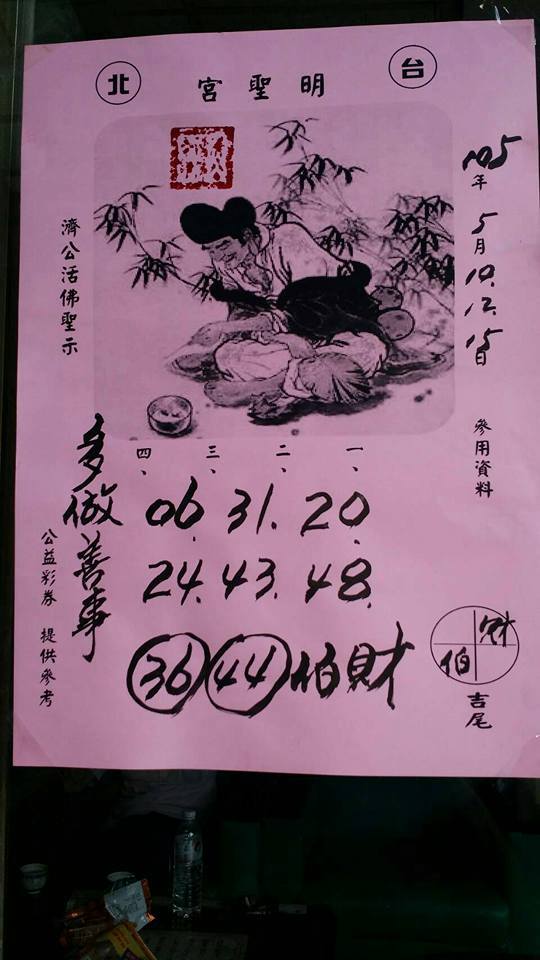 台北
明聖宮
105年5月10.12.15日
參用資料
濟公活佛聖示
一、二、三、四、
06.31.20.
24.43.48.
36 44 伯財
多做善事
公益彩券 提供參考
財
伯
吉尾